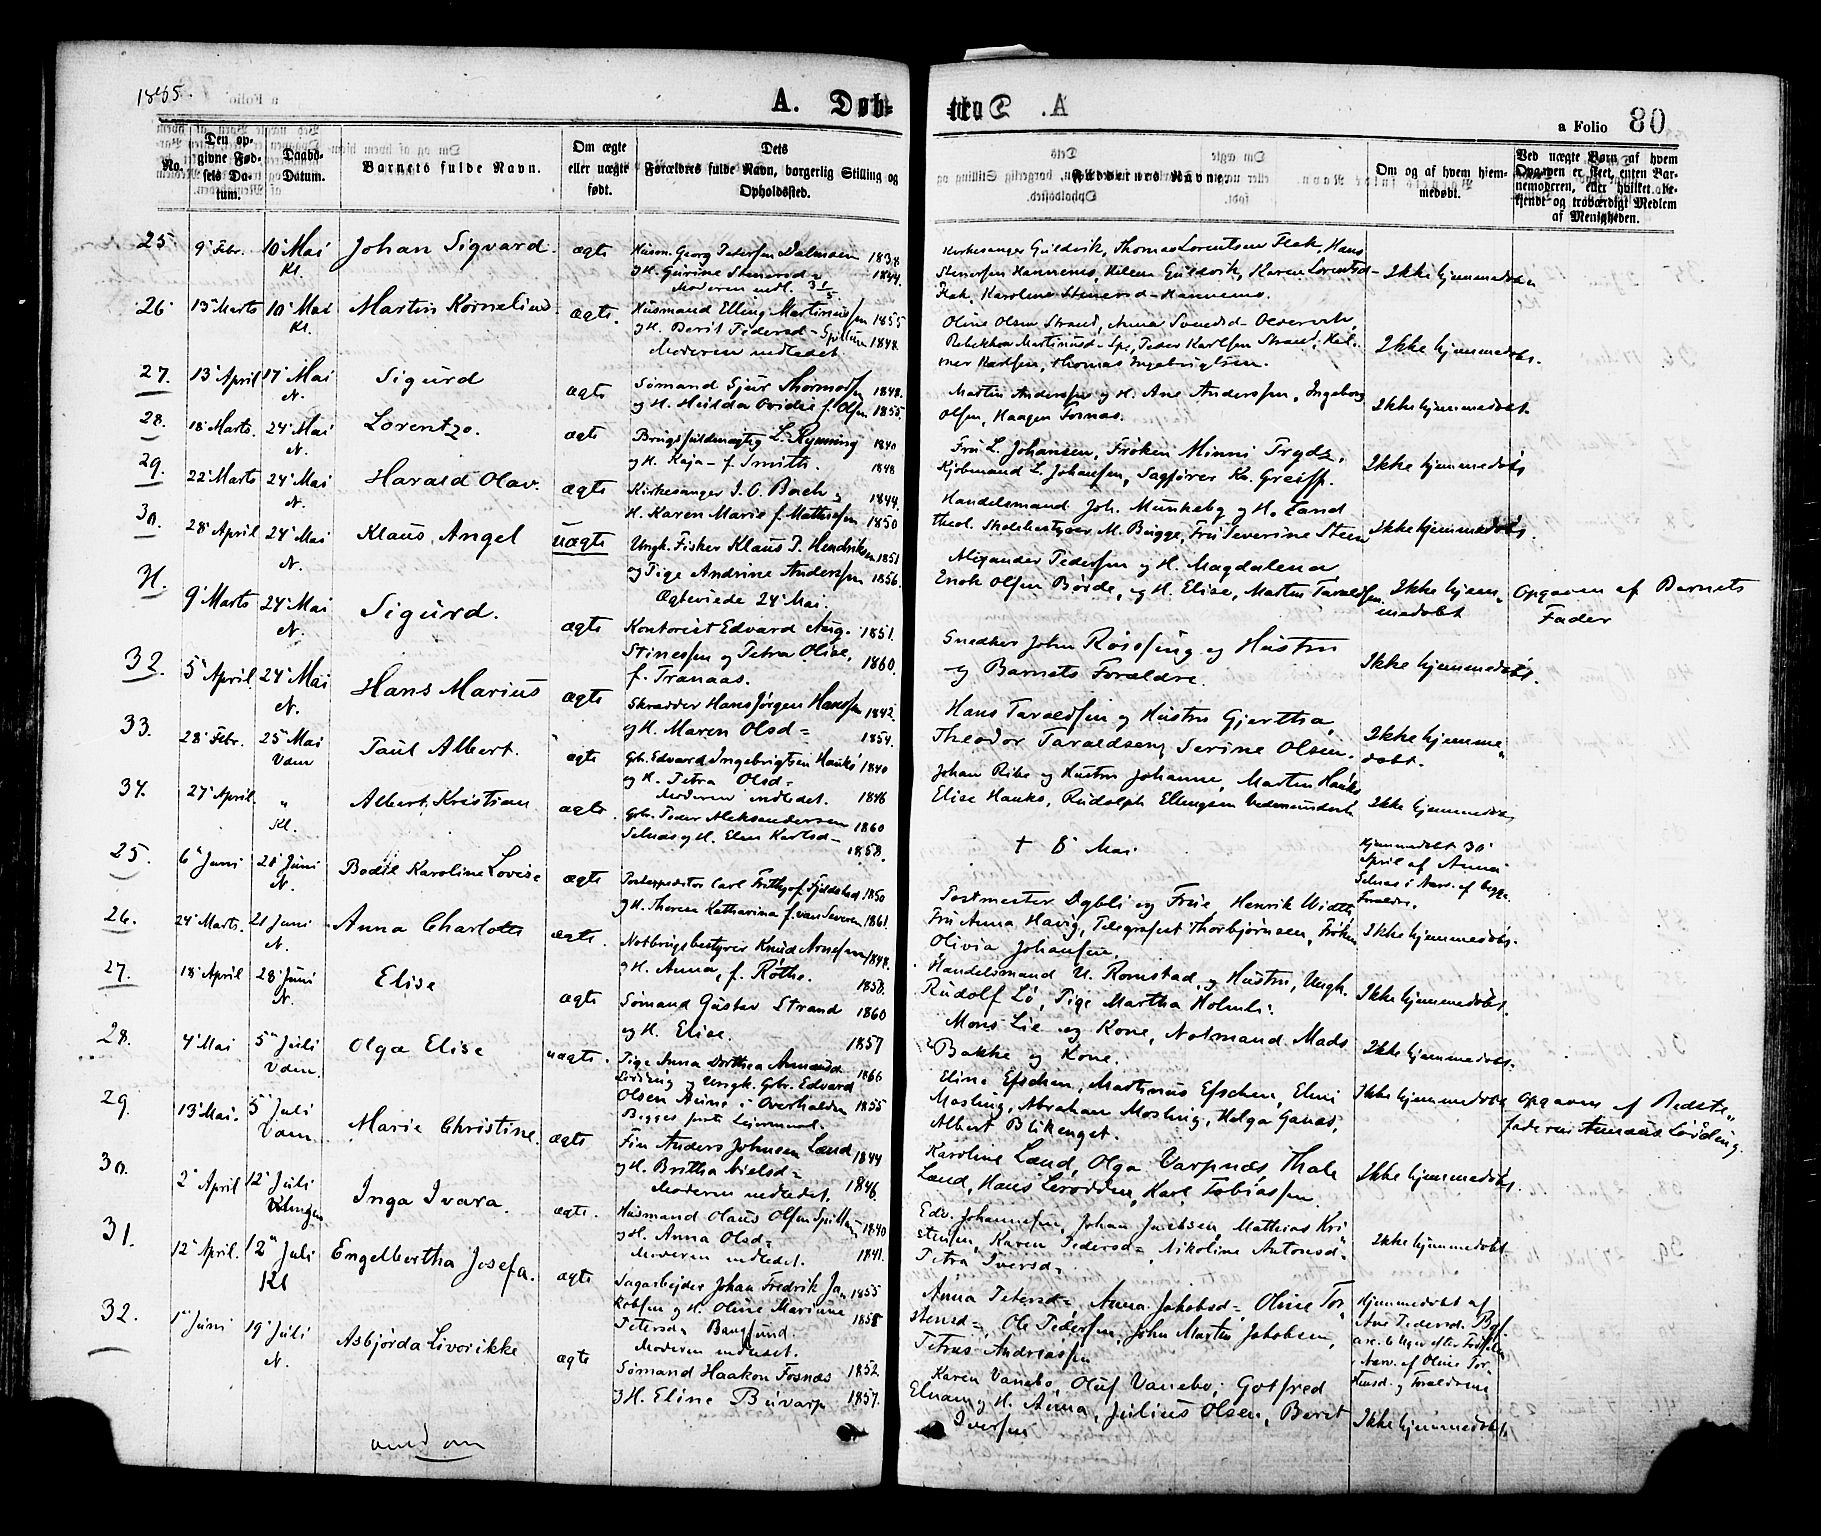 1885.
A. Døb-
te.
a Folio 80
No.
Den op-
givne Fød-
sels Da-
tum.
Daabs-
Datum.
Barnets fulde Navn.
Om ægte
eller uægte
født.
Dets
Forældres fulde Navn, borgerlig Stilling og
Opholdssted.
Faddernes Navne.
Om og af hvem hjem-
medøbt.
Ved uægte Børn af hvem
Opgaven er skeet, enten Bar-
nemoderen, eller hvilket be-
kjendt og troværdigt Medlem
af Menigheden.
25 9 Febr. 10 Mai Kl. Johan Sigvard ægte
Husm. Georg Pedersen Dalmoen 1838
og H. Gurine Stenersd= 1844.
Moderen indl.
Kirkesanger Guldvik, Thomas Lorentsen Flak, Hans
Stenersen Hannemo, Helene Guldvik, Karen Lorentsd-
Flak, Karoline Stenersd- Hannemo.
Ikke hjemmedøbt
26 13 Marts 10 Mai Kl. Martin Kornelius ægte.
Husmand Elling Martinussen 1855
og H. Berit Pedersd- Spillum 1848.
Moderen indledet.
Oline Olsen Strand, Anna Svendsd-
Rebekka Martinusd- Sps, Peder Karlsen Strand, Hel-
mer Karlsen, Thomas Ingebrigtsen.
Ikke hjemmedøbt.
27. 13 April 17 Mai N. Sigurd ægte
Sømand Sjur Thormodsen 1848.
og H. Hulda Ovidie f. Olsen 1855.
Martin Anderssen og H. Ane Anderssen, Ingeborg
Olsen, Haagen Fosnas.
Ikke hjemmedøbt.
28. 18 Marts. 24 Mai N. Lorentzo. ægte
Brugsfuldmægtig L. Rynning 1840
og H. Kaja - f. Smith. 1848
Fru L. Johansen, Frøken Minni Trydz,
Kjøbmand L. Johansen, Sagfører Kr. Greiff.
Ikke hjemmedøbt
29. 22 Marts 24 Mai N. Harald Olav. ægte
Kirkesanger I. O. Bach, 1844.
H. Karen Marie f. Mathisen 1850
Handelsmand Joh. Munkeby og H. Sand
theol. Skolebestyrer M. Bugge, Fru Severine Steen
Ikke hjemmedøbt.
30. 28 April 24 Mai N. Klaus Angel uægte
Ungk. Fisker Klaus P. Hendriksen 1851
og Pige Andrine Anderssen 1856.
Ægteviede 24 Mai.
Alexander Pedersen og H. Magdalena
Enok Olsen Børde, og H. Elise, Martin Taraldsen
Ikke hjem-
medøbt
Opgaven af Barnets
Fader
31. 9 Marts 24 Mai N. Sigurd. ægte
Kontorist Edvard Aug. 1851.
Stinessen og Petra Olise, 1860.
f. Tranaas.
Snedker John Røssing og Hustru
og Barnets Forældre.
Ikke hjemmedøbt.
32. 5 April 24 Mai N. Hans Marius ægte
Skrædder Hans Jørgen Hanssen 1842.
og H. Maren Olsd= 1854.
Hans Taraldsen og Hustru Gjertha,
Theodor Taraldsen, Serine Olsen.
Ikke hjemme-
døbt.
33. 28 Febr. 25 Mai Vdm Paul Albert. ægte
Grb. Edvard Ingebrigtsen Hauks 1840
og H. Petra Olsd- 1846
Moderen indledet.
Johan Ribe og Hustru Johanne, Martin Hauks
Elise Hauks, Rudolph Ellingsen
Ikke hjemmedøbt
34. 27 April " Kl. Albert Kristian ægte.
Grb. Peder Aleksandersen 1860
Selnæs og H. Elen Karlsd- 1858.
† 8 Mai
Hjemmedøbt 30
April af Anna
Selnæs i Nærv. af begge
Forældre.
25. 6 Juni 20 Juni N. Bodil Karoline Lovise ægte
Postexpeditør Carl Frithjof Fjeldstad 1850
og H. Therese Katharina f. van Severen 1861.
Postmester Dybli og Frue, Henrik Width
Frk. Anna Havig, Telegrafist Thorbjørnsen, Frøken
Olivia Johansen.
Ikke hjemmedøbt.
26. 24 Marts. 21 Juni N. Anna Charlotte ægte.
Notbrugsbestyrer Knud Arnesen 1848.
og H. Anna, f. Røthe. 1858.
Handelsmand U. Romstad, og Hustru, Ungk.
Rudolf Lø, Pige Martha Holmli.
Ikke hjemmedøbt.
27. 18 April 28 Juni N. Elise ægte
Sømand Gustav Strand 1860
og H. Elise. 1857
Mons Lie og Kone, Notmand Mads
Bakke og Kone.
Ikke hjemmedøbt.
28. 4 Mai 5 Juli Vdm. Olga Elise uægte.
Pige Anna Dorthea Amundsd 1866
Lødding og Ungk. Grb. Edvard
Olsen i Overhalden 1855
Begges første Leiermaal.
Eline Efschen, Martinus Efschen, Elmi
Mosling, Abraham Mosling, Helga Ganas,
Albert Blikenget.
Ikke hjemmedøbt
Opgaven af Bedste-
faderen Amund Lødding.
29. 13 Mai. 5 Juli Vdm. Marie Christine. ægte
Anders Johnsen Lænd 1844
og H. Britha Nielsd= 1846.
Moderen indledet.
Karoline Lænd, Olga Varpnæs, Thale
Lænd, Hans Lerodden, Karl Tobiassen.
Ikke hjemmedøbt.
30. 2 April 12 Juli Klingen Inga Ivara. ægte.
Husmand Olaus Olsen Spillum 1840
og H. Anna Olsd= 1841.
Moderen indledet.
Edv. Johannesen, Johan Jacobsen, Mathias Kri-
stensen, Karen Pedersd=, Nikoline Antonsd=
Petra Iversd=
Ikke hjemmedøbt
31. 12 April. 12 Juli Kl Engelbertha Josefa. ægte
Sagarbejder Johan Fredrik Ja- 1855
kobsen og H. Oline Marinne 1858
Petersd= Bangsund.
Moderen indledet.
Anna Petersd=, Anna Jakobsd=, Oline Tor-
stensd=, Ole Pedersen, John Martin Jakobsen,
Petrus Andreassen
Hjemmedøbt af
Ane Pedersd.
6 Uger efter Fødselen
i Nærv. af Oline Tor-
stensd. og Forældrene
32. 1 Juni 19 Juli N. Asbjørda Livorikke ægte
Sømand Haakon Fosnæs 1852
og H. Eline Buvarp 1857.
Karen Vanebo, Oluf Vanebo, Gotfred
Elnan og H. Anna, Julius Olsen, Beret
Iversen
Ikke hjemmedøbt.
vend om